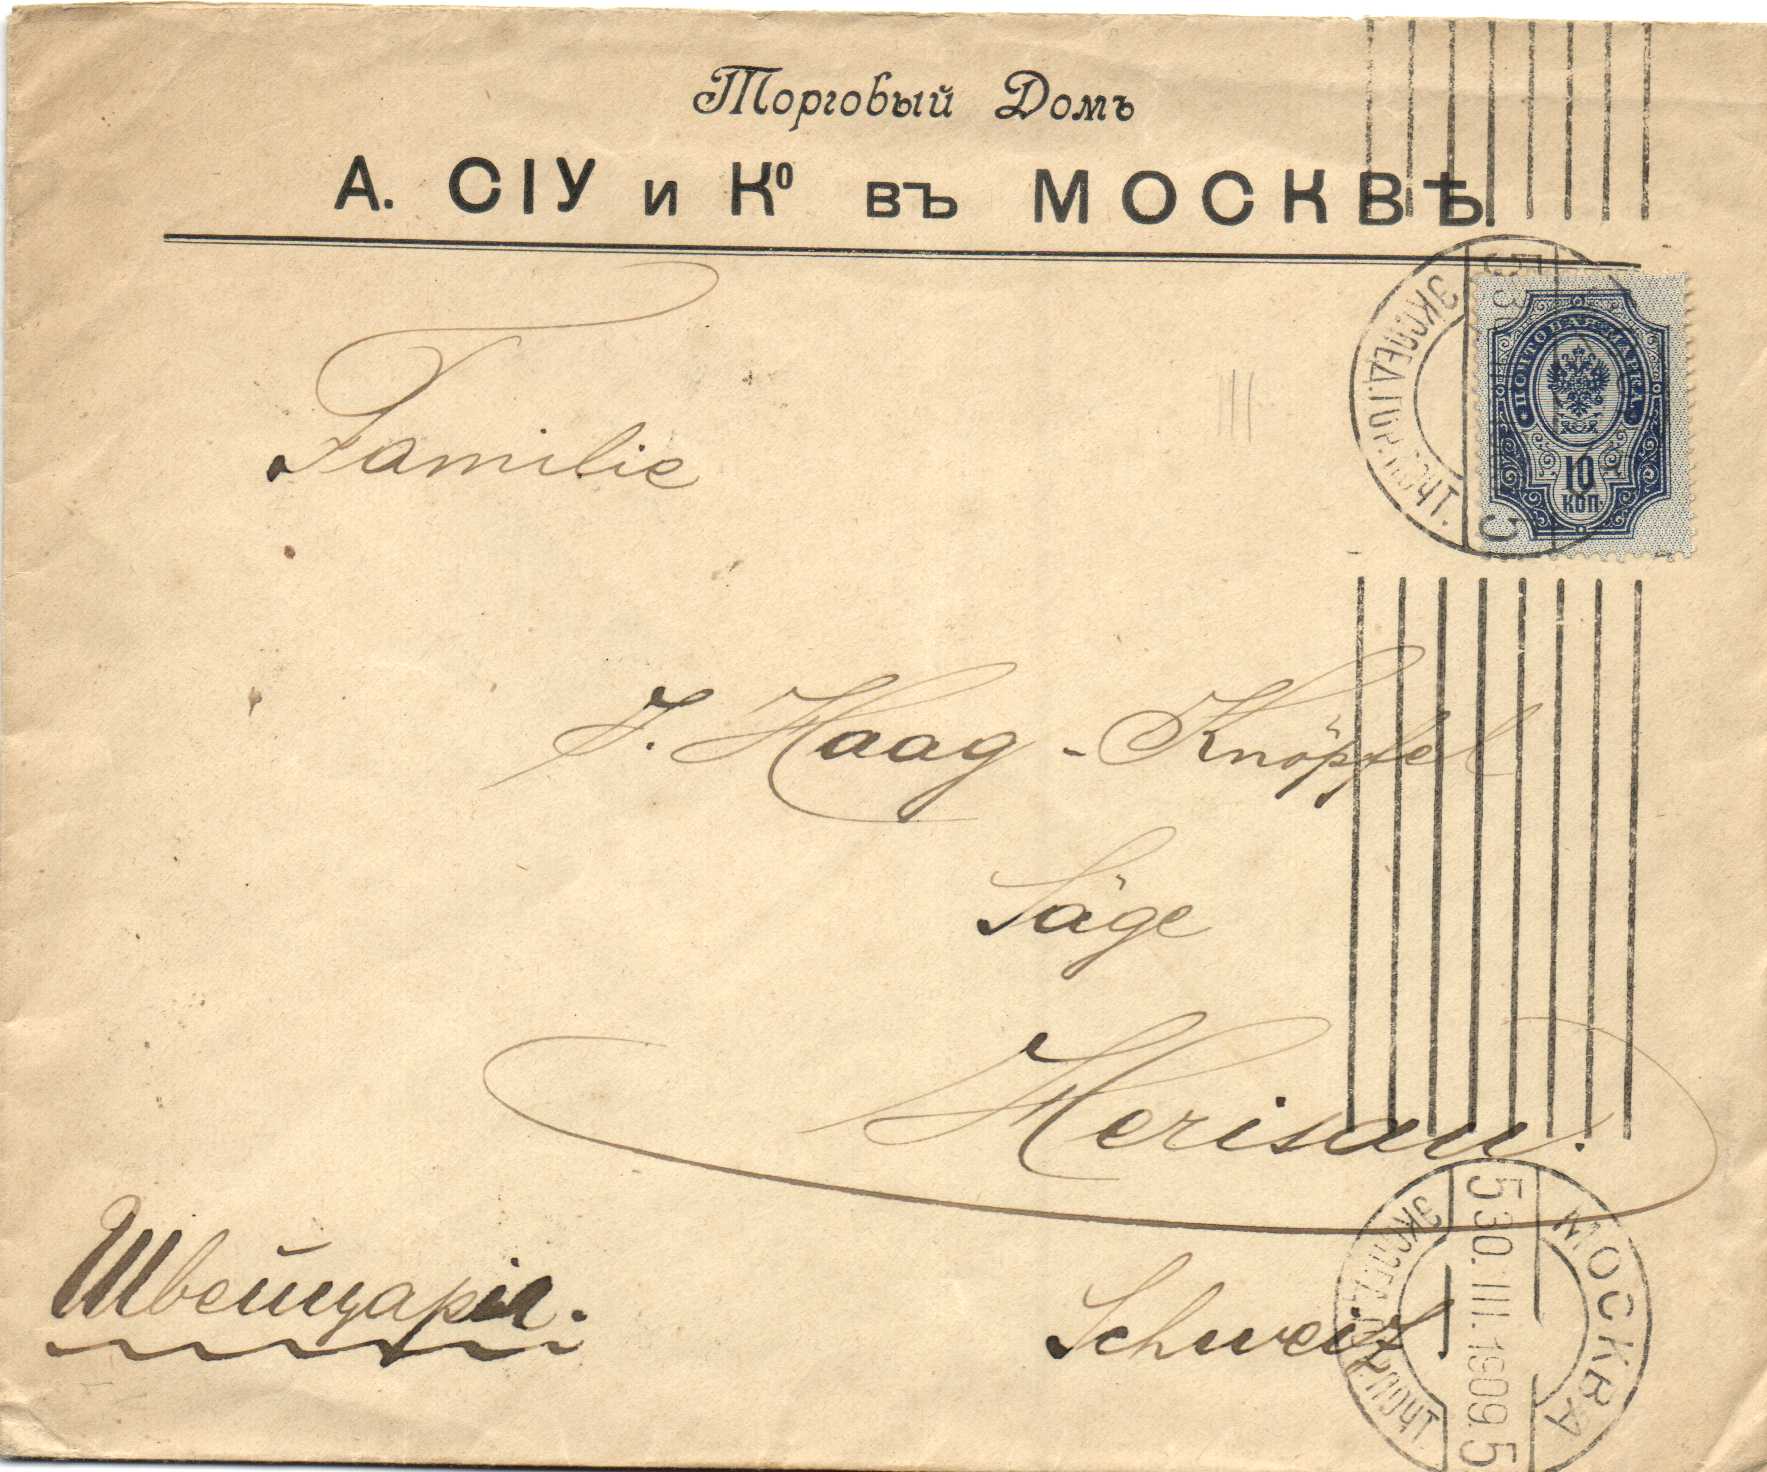 Торговый Домъ
А. СІУ и Ко въ МОСКВѢ.
5 30
ЭКСПЕД. ГОР. ПОЧТ.
5
ПОЧТОВАЯ МАРКА
10
КОП.
Familie
J. Haag-Knöpfel
Säge
Herisau.
Швейцарія.
Schweiz
МОСКВА
5 30. III. 1909. 5
ЭКСПЕД. ГОР. ПОЧТ.